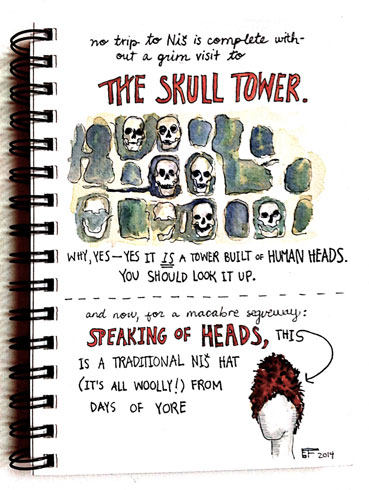 no trip to Niš is complete with-
out a grim visit to
THE SKULL TOWER.
WHY, YES—YES IT IS A TOWER BUILT OF HUMAN HEADS.
YOU SHOULD LOOK IT UP.
and now, for a macabre segueway:
SPEAKING OF HEADS, THIS
IS A TRADITIONAL NIŠ HAT
(IT'S ALL WOOLLY!) FROM
DAYS OF YORE
2014